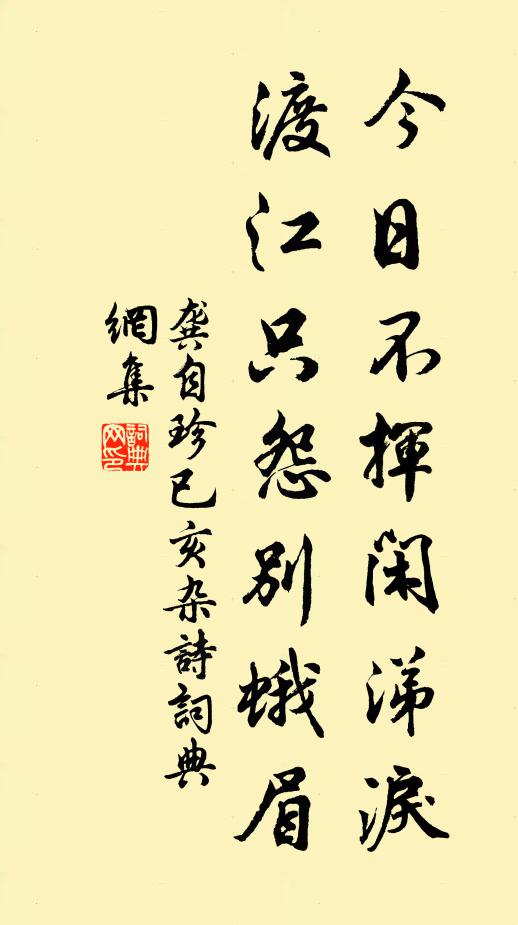 今日不揮閑涕淚
渡江只怨別蛾眉
龔自珍已亥杂詩詞典
網集
詞典
网印